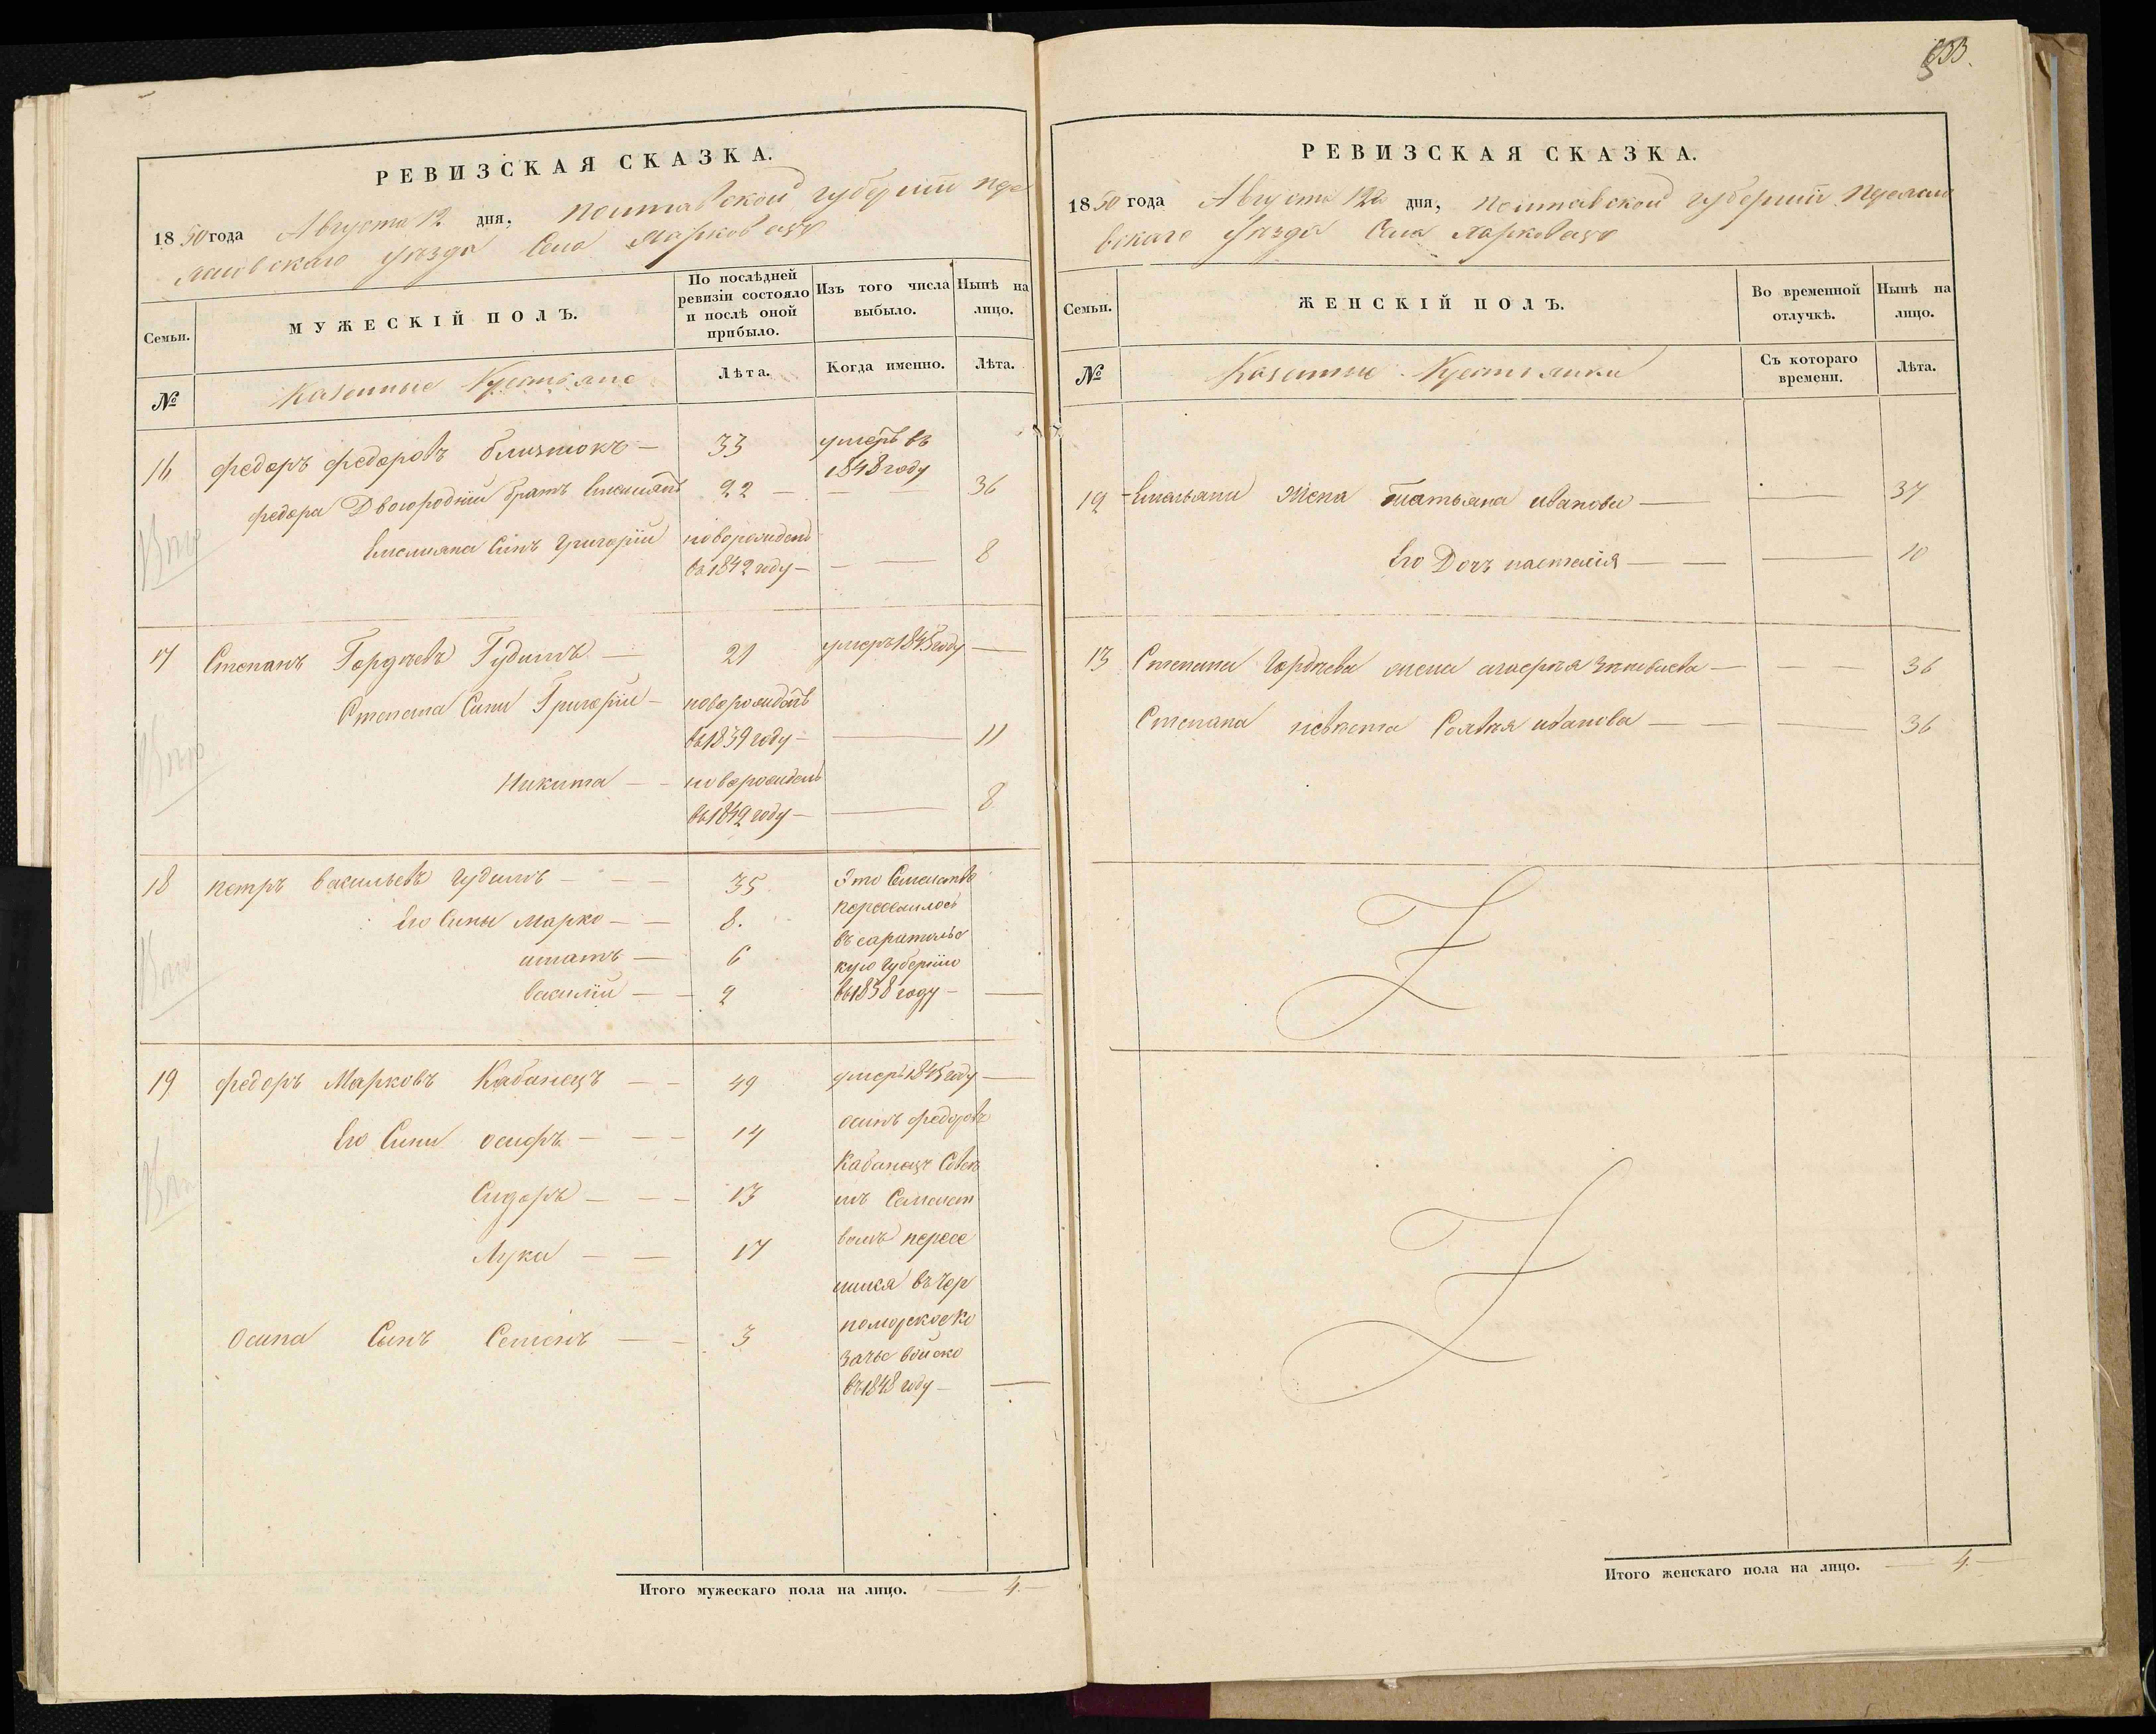 РЕВИЗСКАЯ СКАЗКА.
1850 года Августа 12 дня, Полтавской губернии Пре
яславскаго уѣзда Села Марковецъ
Семьи.
МУЖЕСКІЙ ПОЛЪ.
По послѣдней ревизіи состояло и послѣ оной прибыло.
Изъ того числа выбыло.
Нынѣ на лицо.
№
Казенные Крестьяне
Лѣта.
Когда именно.
Лѣта.
16 Федоръ Федоровъ близнюкъ — 33 умеръ въ
1848 году
Федора Двоюродній братъ Емелиянъ 22 — — 36
Емелияна Синъ Григорій новорожденъ
въ 1842 году — — — 8
17 Степанъ Гордѣевъ Гудимъ — 21 умеръ 1845 году —
Степана Сини Григорій — новорожденъ
въ 1839 году — — 11
Никита — — новорожденъ
въ 1842 году — — 8
18 петръ васильевъ гудимъ — — — 35 Это Семейство
Его Сины Марко — — 8. переселилось
игнатъ — 6 въ саратовс
кую Губернію
василій — — 2 въ 1838 году — —
19 федоръ Марковъ Кабанецъ — — 49 умеръ 1845 году —
Его Сини осифъ — — — 14 осипъ федоровъ
Кабанецъ Совсѣ
Сидоръ — — — 13 мъ Семейст
Лука — — 17 вомъ пересе
лился въ Чер
Осипа Сынъ Семенъ — — 3 номорское Ко
зачье войско
въ 1848 году — —
Итого мужескаго пола на лицо. — 4 —
РЕВИЗСКАЯ СКАЗКА.
1850 года Августа 12 дня, Полтавской губерніи Преясла
вскаго уѣзда Села Марковецъ
Семьи.
ЖЕНСКІЙ ПОЛЪ.
Во временной отлучкѣ.
Нынѣ на лицо.
№
Казенные Крестьянки
Съ котораго времени.
Лѣта.
12 Емельяна Жена Татьяна иванова — — 37
Его Дочъ настасія — — — 10
13 Степана Гордѣева жена Зиновиева — — — 36
Степана невѣста иванова — — — 36
Итого женскаго пола на лицо. — 4 —